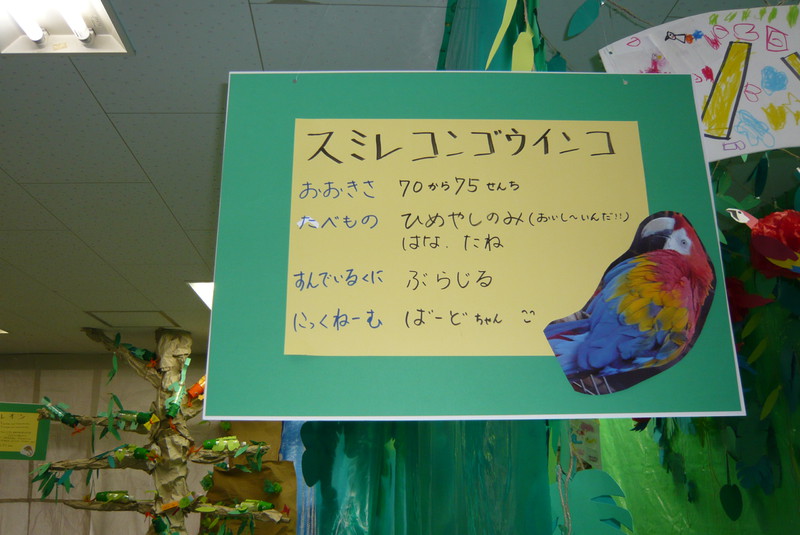 スミレコンゴウインコ
おおきさ 70から75せんち
たべもの ひめやしのみ(おいし〜いんだ!!)
はな、たね
すんでいるくに ぶらじる
にっくねーむ ばーどちゃん